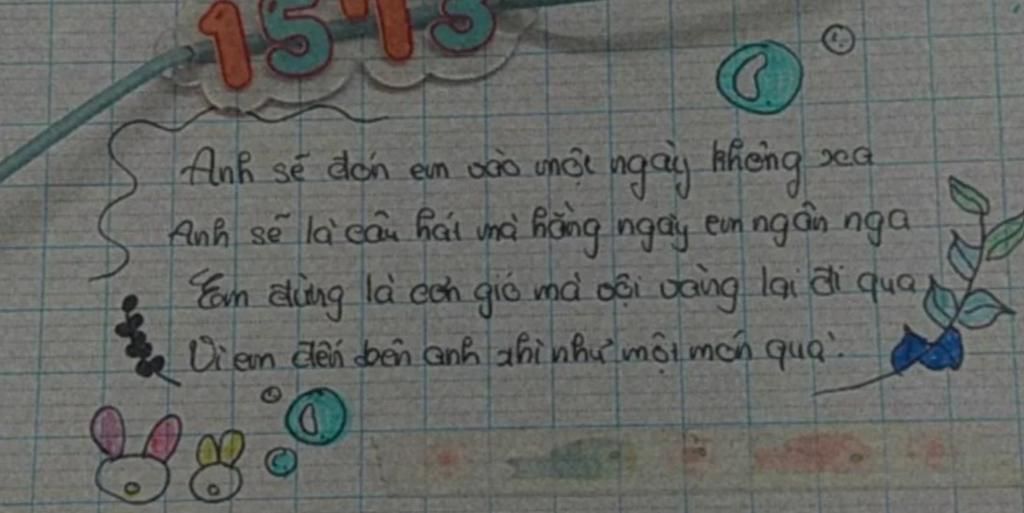 1573
Anh sẽ đón em vào một ngày không xa
Anh sẽ là câu hát mà hằng ngày em ngân nga
Em đừng là cơn gió mà vội vàng lại đi qua
Vì em đến bên anh thì như một món quà.